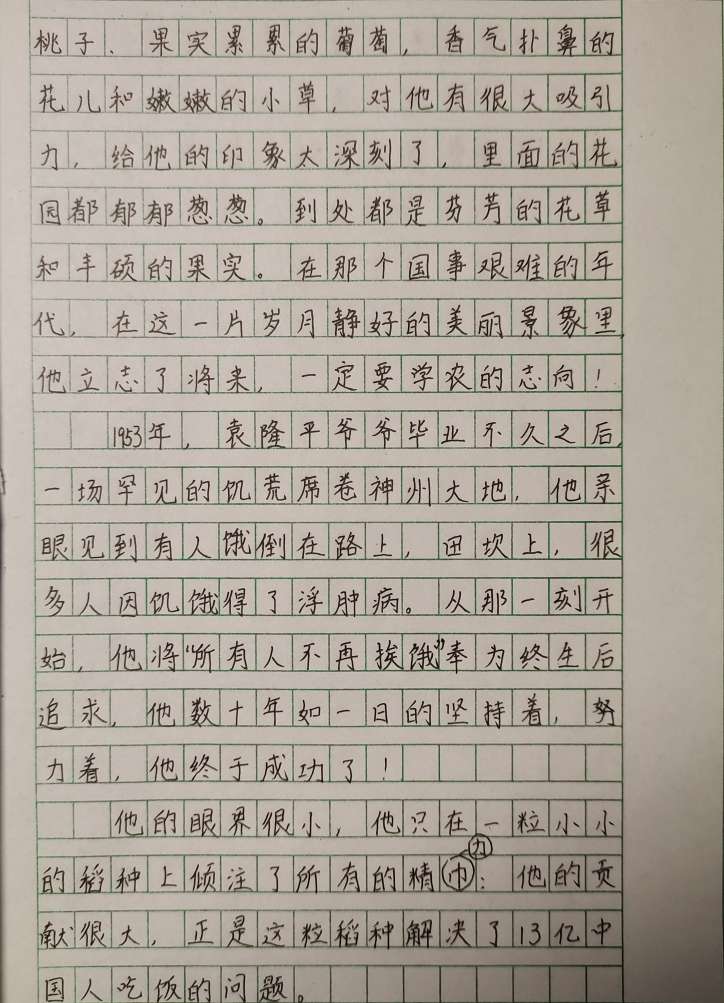 桃子、果实累累的葡萄，香气扑鼻的
花儿和嫩嫩的小草，对他有很大吸引
力，给他的印象太深刻了，里面的花
园都郁郁葱葱。到处都是芬芳的花草
和丰硕的果实。在那个国事艰难的年
代，在这一片岁月静好的美丽景象里，
他立志了将来，一定要学农的志向！
1953年，袁隆平爷爷毕业不久之后，
一场罕见的饥荒席卷神州大地，他亲
眼见到有人饿倒在路上，田坎上，很
多人因饥饿得了浮肿病。从那一刻开
始，他将“所有人不再挨饿”奉为终生后
追求，他数十年如一日的坚持着，努
力着，他终于成功了！
他的眼界很小，他只在一粒小小
的稻种上倾注了所有的精力；他的贡
献很大，正是这粒稻种解决了13亿中
国人吃饭的问题。